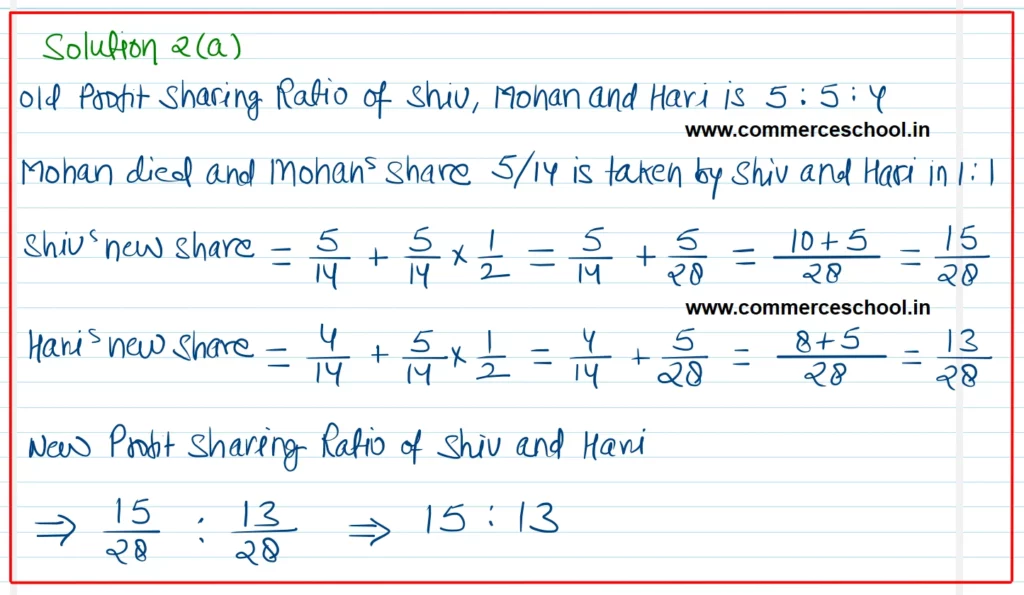 Solution 2(a)
Old Profit Sharing Ratio of Shiv, Mohan and Hari is 5 : 5 : 4
www.commerceschool.in
Mohan died and Mohan's share 5/14 is taken by Shiv and Hari in 1 : 1
Shiv's new share = 5/14 + 5/14 × 1/2 = 5/14 + 5/28 = 10+5/28 = 15/28
www.commerceschool.in
Hari's new share = 4/14 + 5/14 × 1/2 = 4/14 + 5/28 = 8+5/28 = 13/28
New Profit Sharing Ratio of Shiv and Hari
⇒ 15/28 : 13/28 ⇒ 15 : 13